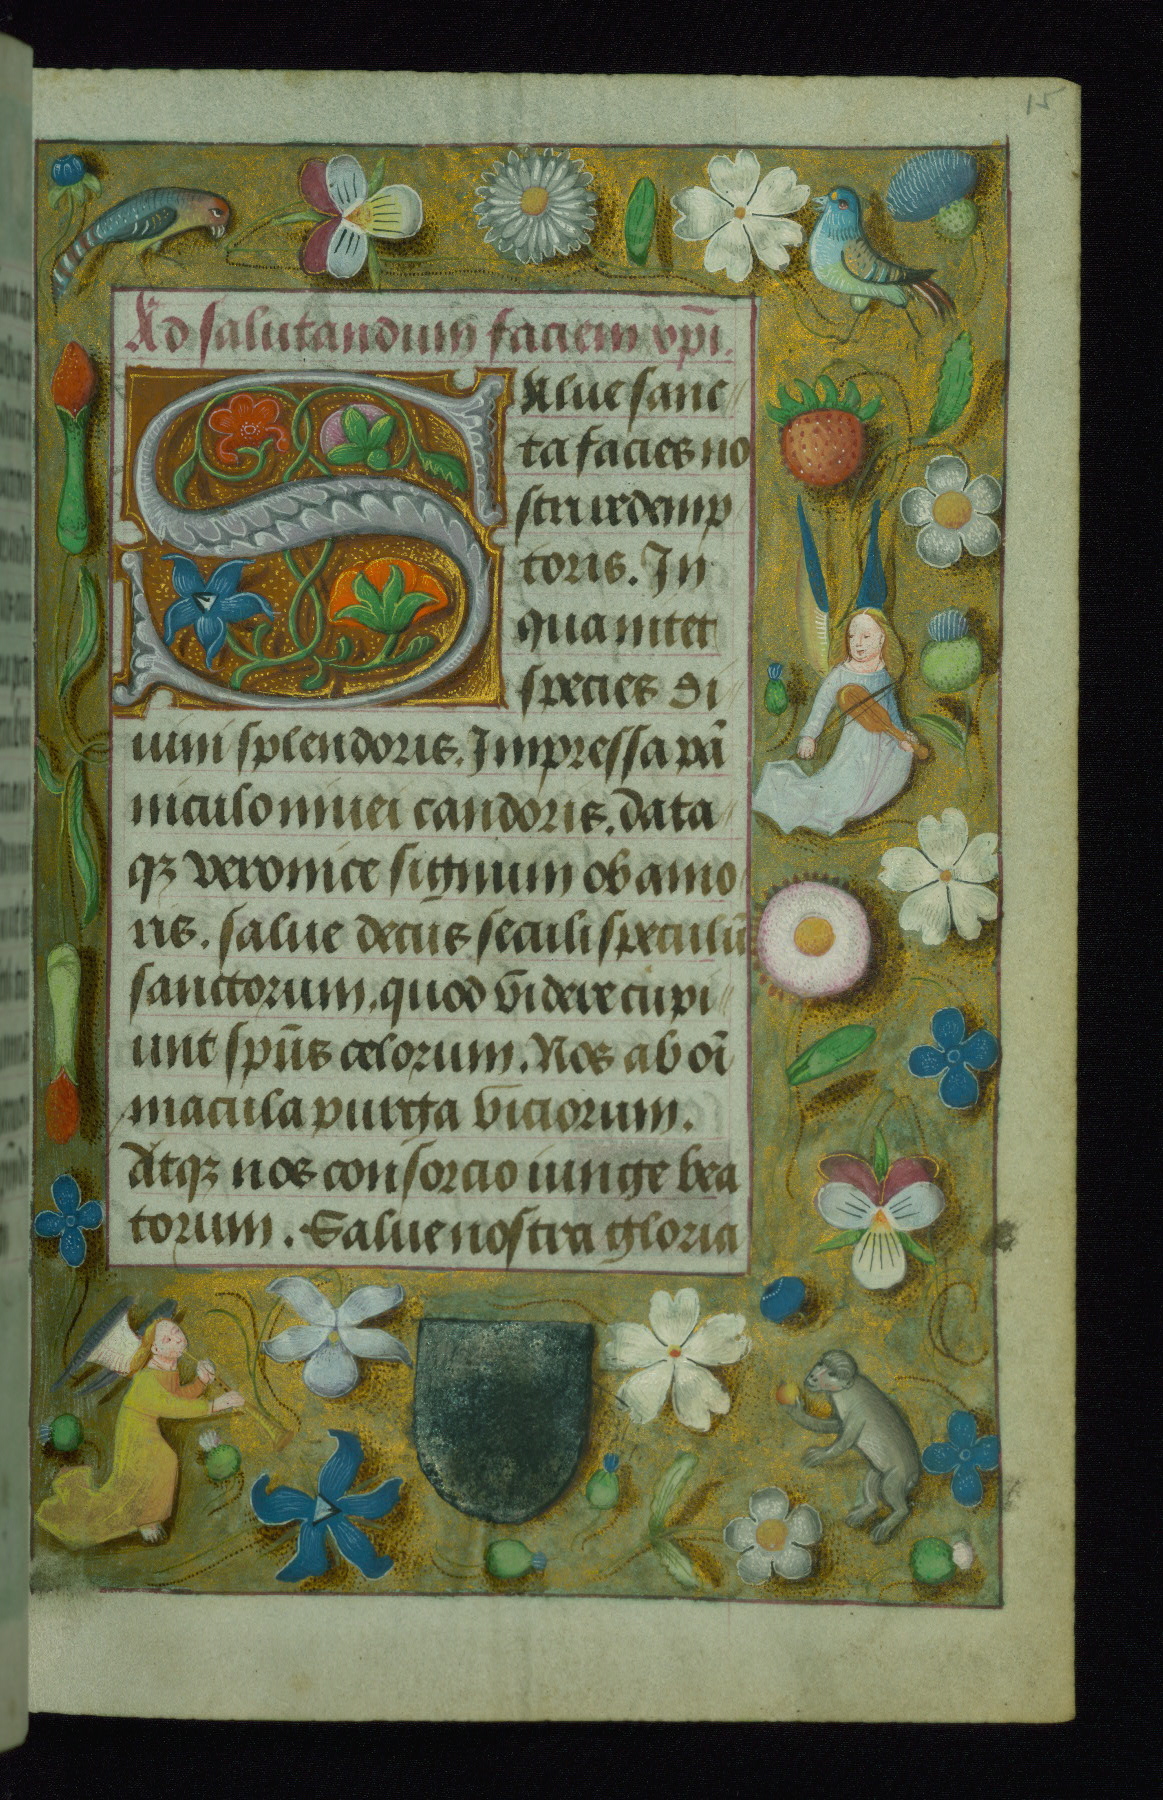 15
Ad salutandum faciem xp̄i.
Salue sanc
ta facies no
stri redemp
toris. In
qua nitet
species di
uini splendoris. Impressa pā
niculo niuei candoris. data
qꝫ veronice signum ob amo
ris. salue decus seculi speculū
sanctorum. quod videre cupi
unt sp̄us celorum. Nos ab oī
macula purga viciorum.
Atqꝫ nos consorcio iunge bea
torum. Salue nostra gloria